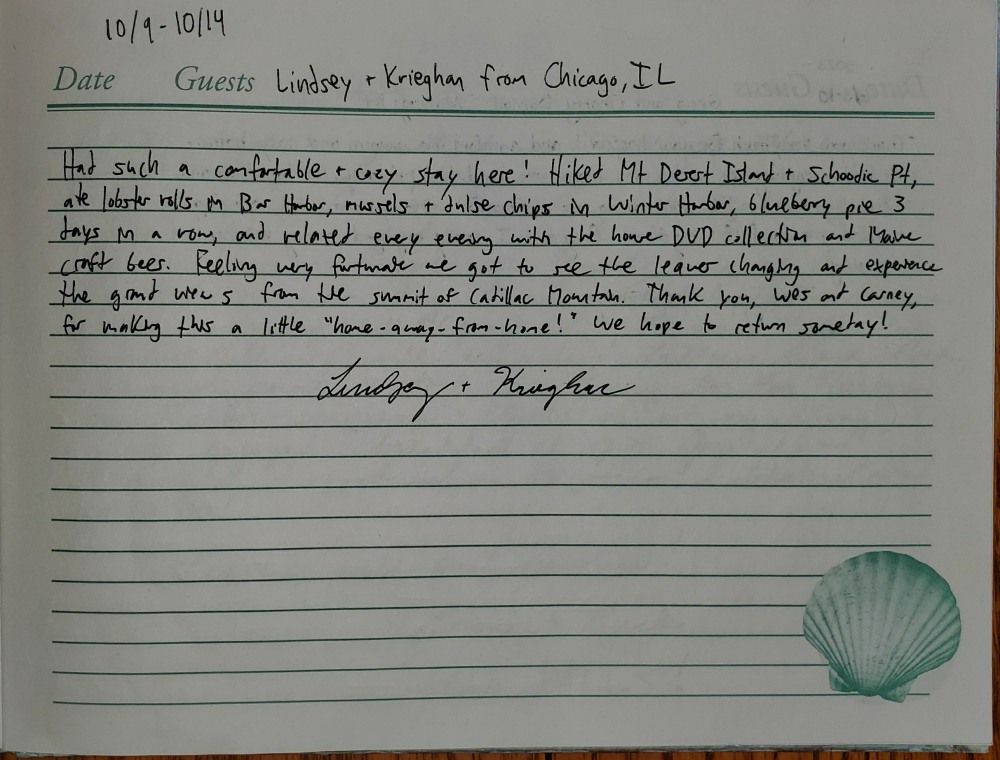 10/9-10/14
Date Guests Lindsey + Krieghan from Chicago, IL
Had such a comfortable + cozy stay here! Hiked Mt Desert Island + Schoodic Pt,
ate lobster rolls in Bar Harbor, mussels + dulse chips in Winter Harbor, blueberry pie 3
days in a row, and relaxed every evening with the house DVD collection and Maine
craft beers. Feeling very fortunate we got to see the leaves changing and experience
the grand views from the summit of Cadillac Mountain. Thank you, Wes and Carney,
for making this a little "home-away-from-home!" We hope to return someday!
Lindsey + Krieghan